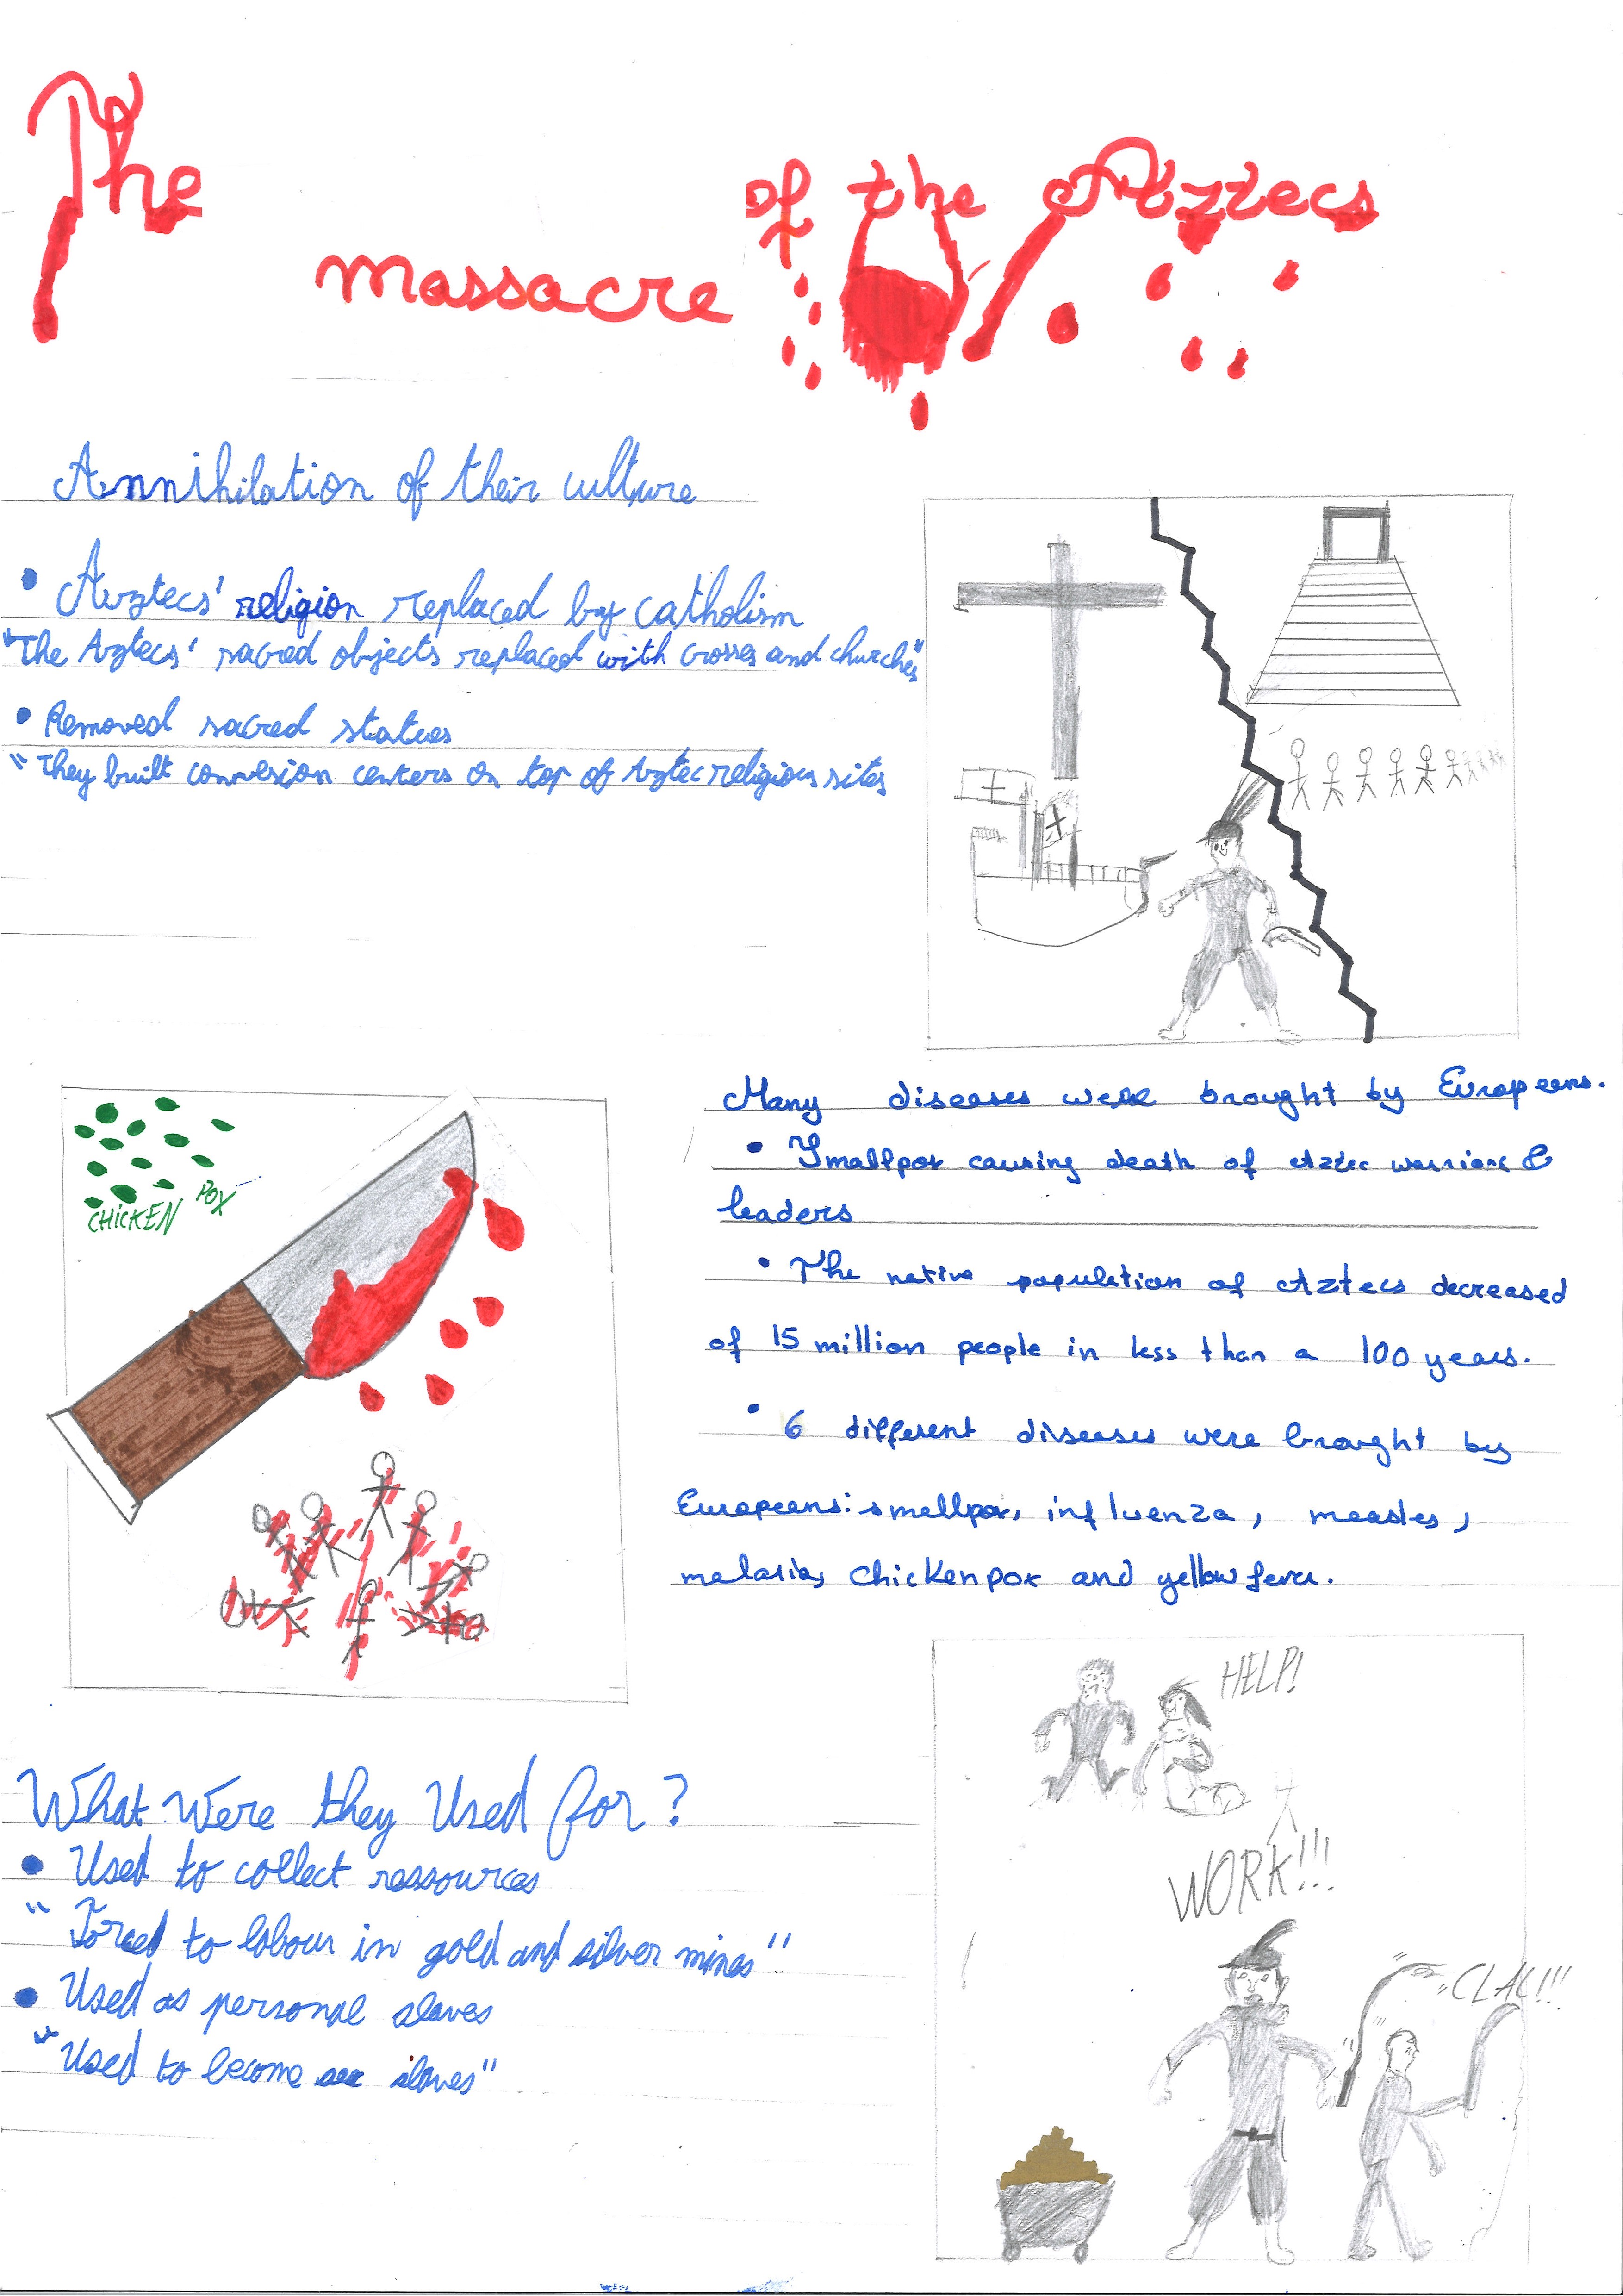 The massacre of the Aztecs
Annihilation of their culture
• Aztecs' religion replaced by catholism
"The Aztecs' sacred objects replaced with crosses and churches"
• Removed sacred statues
"They built conversion centers on top of Aztec religious sites
Many diseases were brought by Europeans.
• Smallpox causing death of Aztec warriors &
leaders
• The native population of Aztecs decreased
of 15 million people in less than a 100 years.
• 6 different diseases were brought by
Europeans: smallpox, influenza, measles,
malaria, chickenpox and yellow fever.
CHICKEN POX
What Were they Used for?
• Used to collect ressources
"Forced to labour in gold and silver mines"
• Used as personal slaves
"Used to become sex slaves"
HELP!
WORK!!!
CLAC!!!